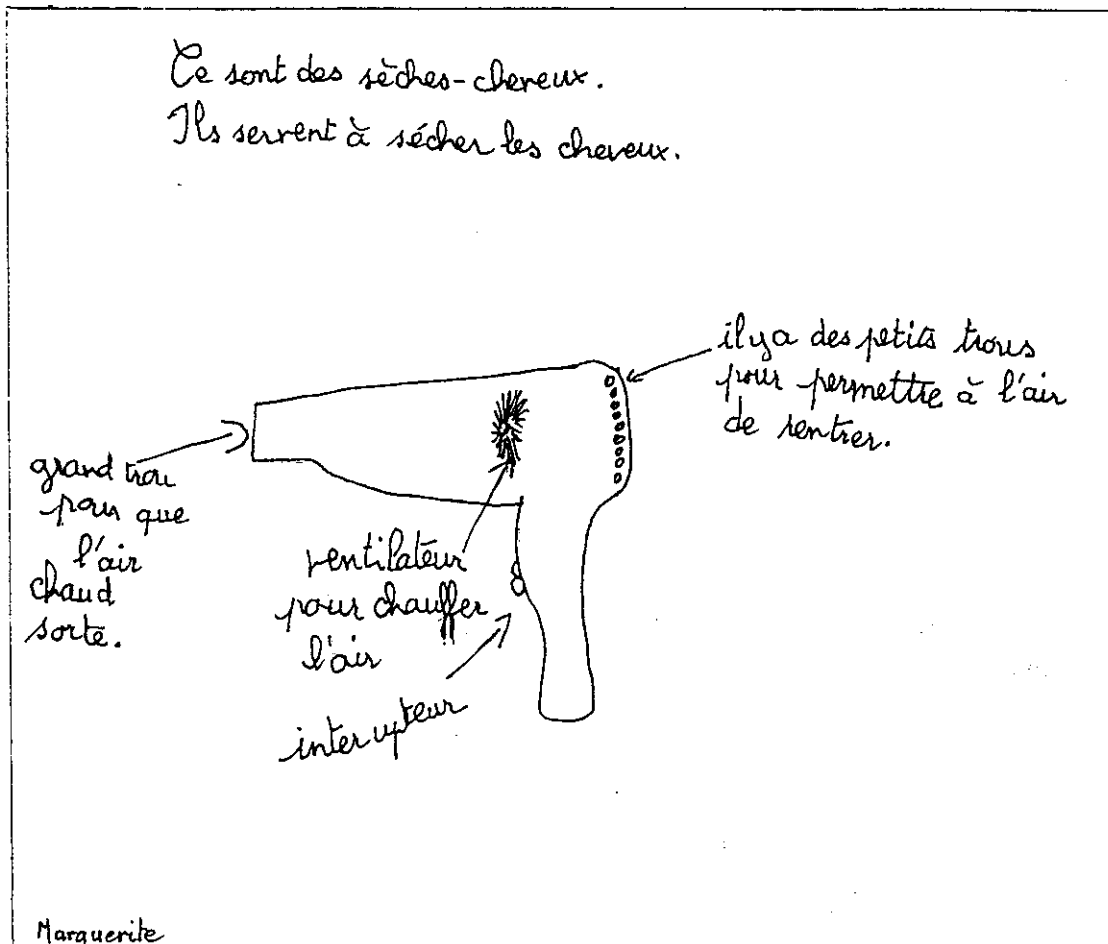 Ce sont des sèches-cheveux.
Ils servent à sécher les cheveux.
il y a des petits trous
pour permettre à l'air
de rentrer.
grand trou
pour que
l'air
chaud
sorte.
ventilateur
pour chauffer
l'air
interupteur
Marguerite